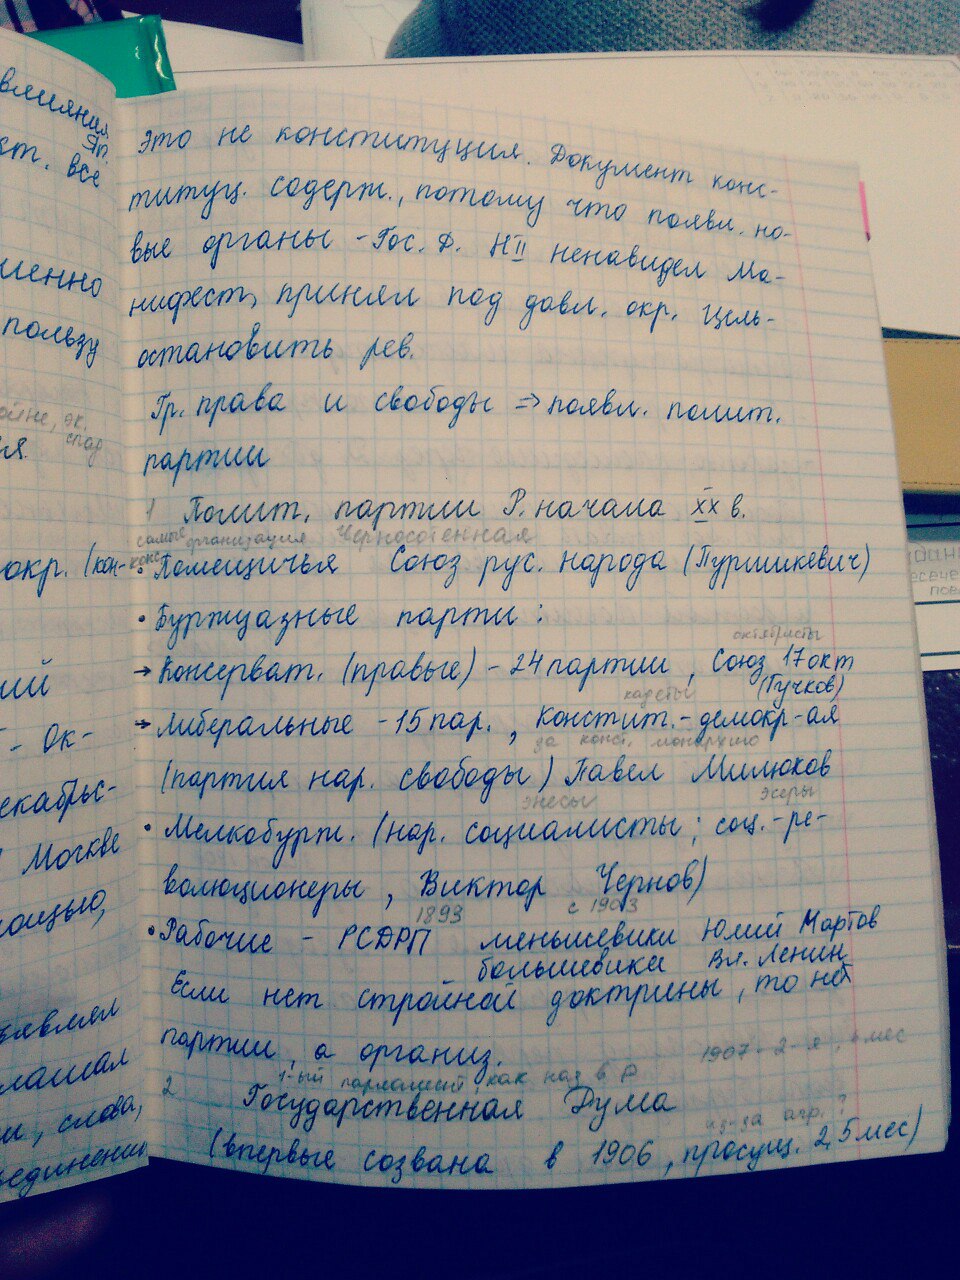 влияния
эп.
ст. все
шенно
пользу
ойне, эк.
спад
ия.
окр. (кон-
ий
- Ок-
екабрьс-
Москве
ощью,
ъявлял
лашал
и, слова,
единении
Это не конституция. Документ конс-
титуц. содерж., потому что появл. но-
вые органы - Гос. Д. НII ненавидел Ма-
нифест, принял под давл. окр. цель-
остановить рев.
Гр. права и свободы ⇒ появл. полит.
партии
1 Полит. партии Р. начала XX в.
самые организация Черносотенная
конс.
• Помещичья Союз рус. народа (Пуришкевич)
• Буржуазные парти :
октябристы
→ Консерват. (правые) - 24 партии, Союз 17 окт
(Гучков)
кадеты
→ Либеральные - 15 пар., Констит.- демокр-ая
за конст. монархию
(партия нар. свободы) Павел Милюков
энесы эсеры
• Мелкобурж. (нар. социалисты ; соц.-ре-
волюционеры, Виктор Чернов)
1893 с 1903
• Рабочие - РСДРП меньшевики Юлий Мартов
большевики Вл. Ленин
Если нет стройной доктрины, то не
партии, а организ.
1907 - 2-я, мес
1-ый парламент, как на в Р
2 Государственная Дума
из-за агр. ?
(впервые созвана в 1906, просущ. 2,5 мес)